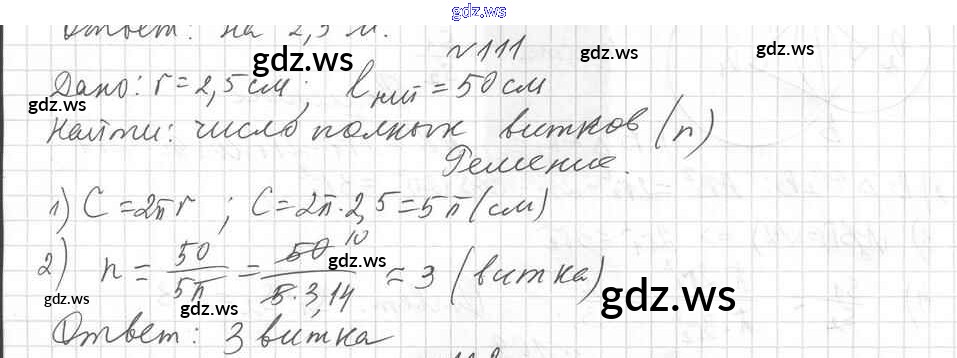 gdz.ws
Ответ: на 2,5 м.
№111
gdz.ws gdz.ws gdz.ws
Дано: r = 2,5 см; lнит = 50 см
gdz.ws gdz.ws
Найти: число полных витков (n)
Решение.
1) C = 2πr ; C = 2π · 2,5 = 5π (см)
2) n = 50/5π = 50 10/5 · 3,14 ≈ 3 (витка)
gdz.ws
gdz.ws gdz.ws gdz.ws
Ответ: 3 витка